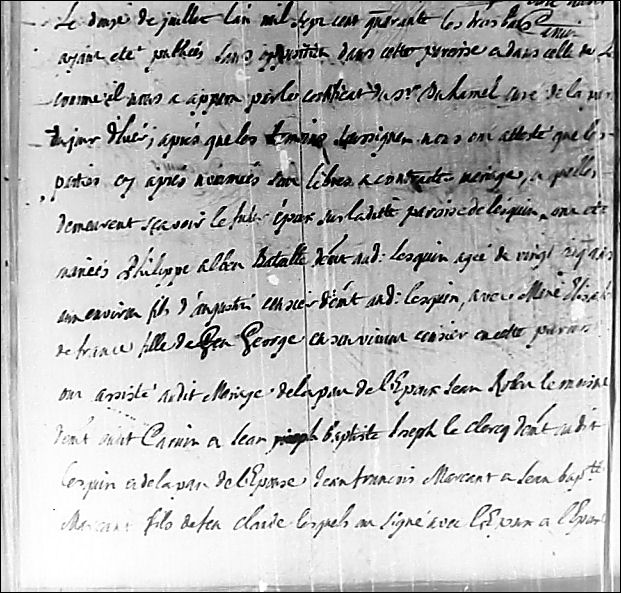 Le douse de juillet l'an mil sept cent quarante les trois bans
ayant eté publiés sans opposition dans cette paroise et dans celle de
comme il nous a apparu par le certificat du Sr. Duhamel curé de la
du jour d'hier, apres que les temoins soussignez nous ont attesté que les
parties cy apres nommées sont libres a contracter mariage, et quelles
demeurent sçavoir le futur époux sur laditte paroise de lesquin, ont eté
mariées Philippe albin Bataille demt. aud: lesquin agée de vingt
ans environ fils d'augustin censier demt aud: lesquin, avec Marie
de france fille de feu George en son vivant censier en cette
ont assisté audit Mariage de la part de l'Epoux Jean le moine
demt audit Carvin et Jean joseph baptiste Joseph le clercq demt audit
lesquin et de la part de l'Epouse Jean francois Marcant et Jean bapte
Marcant fils de feu claude lesquels ont signé avec l'Epoux et l'Epouse